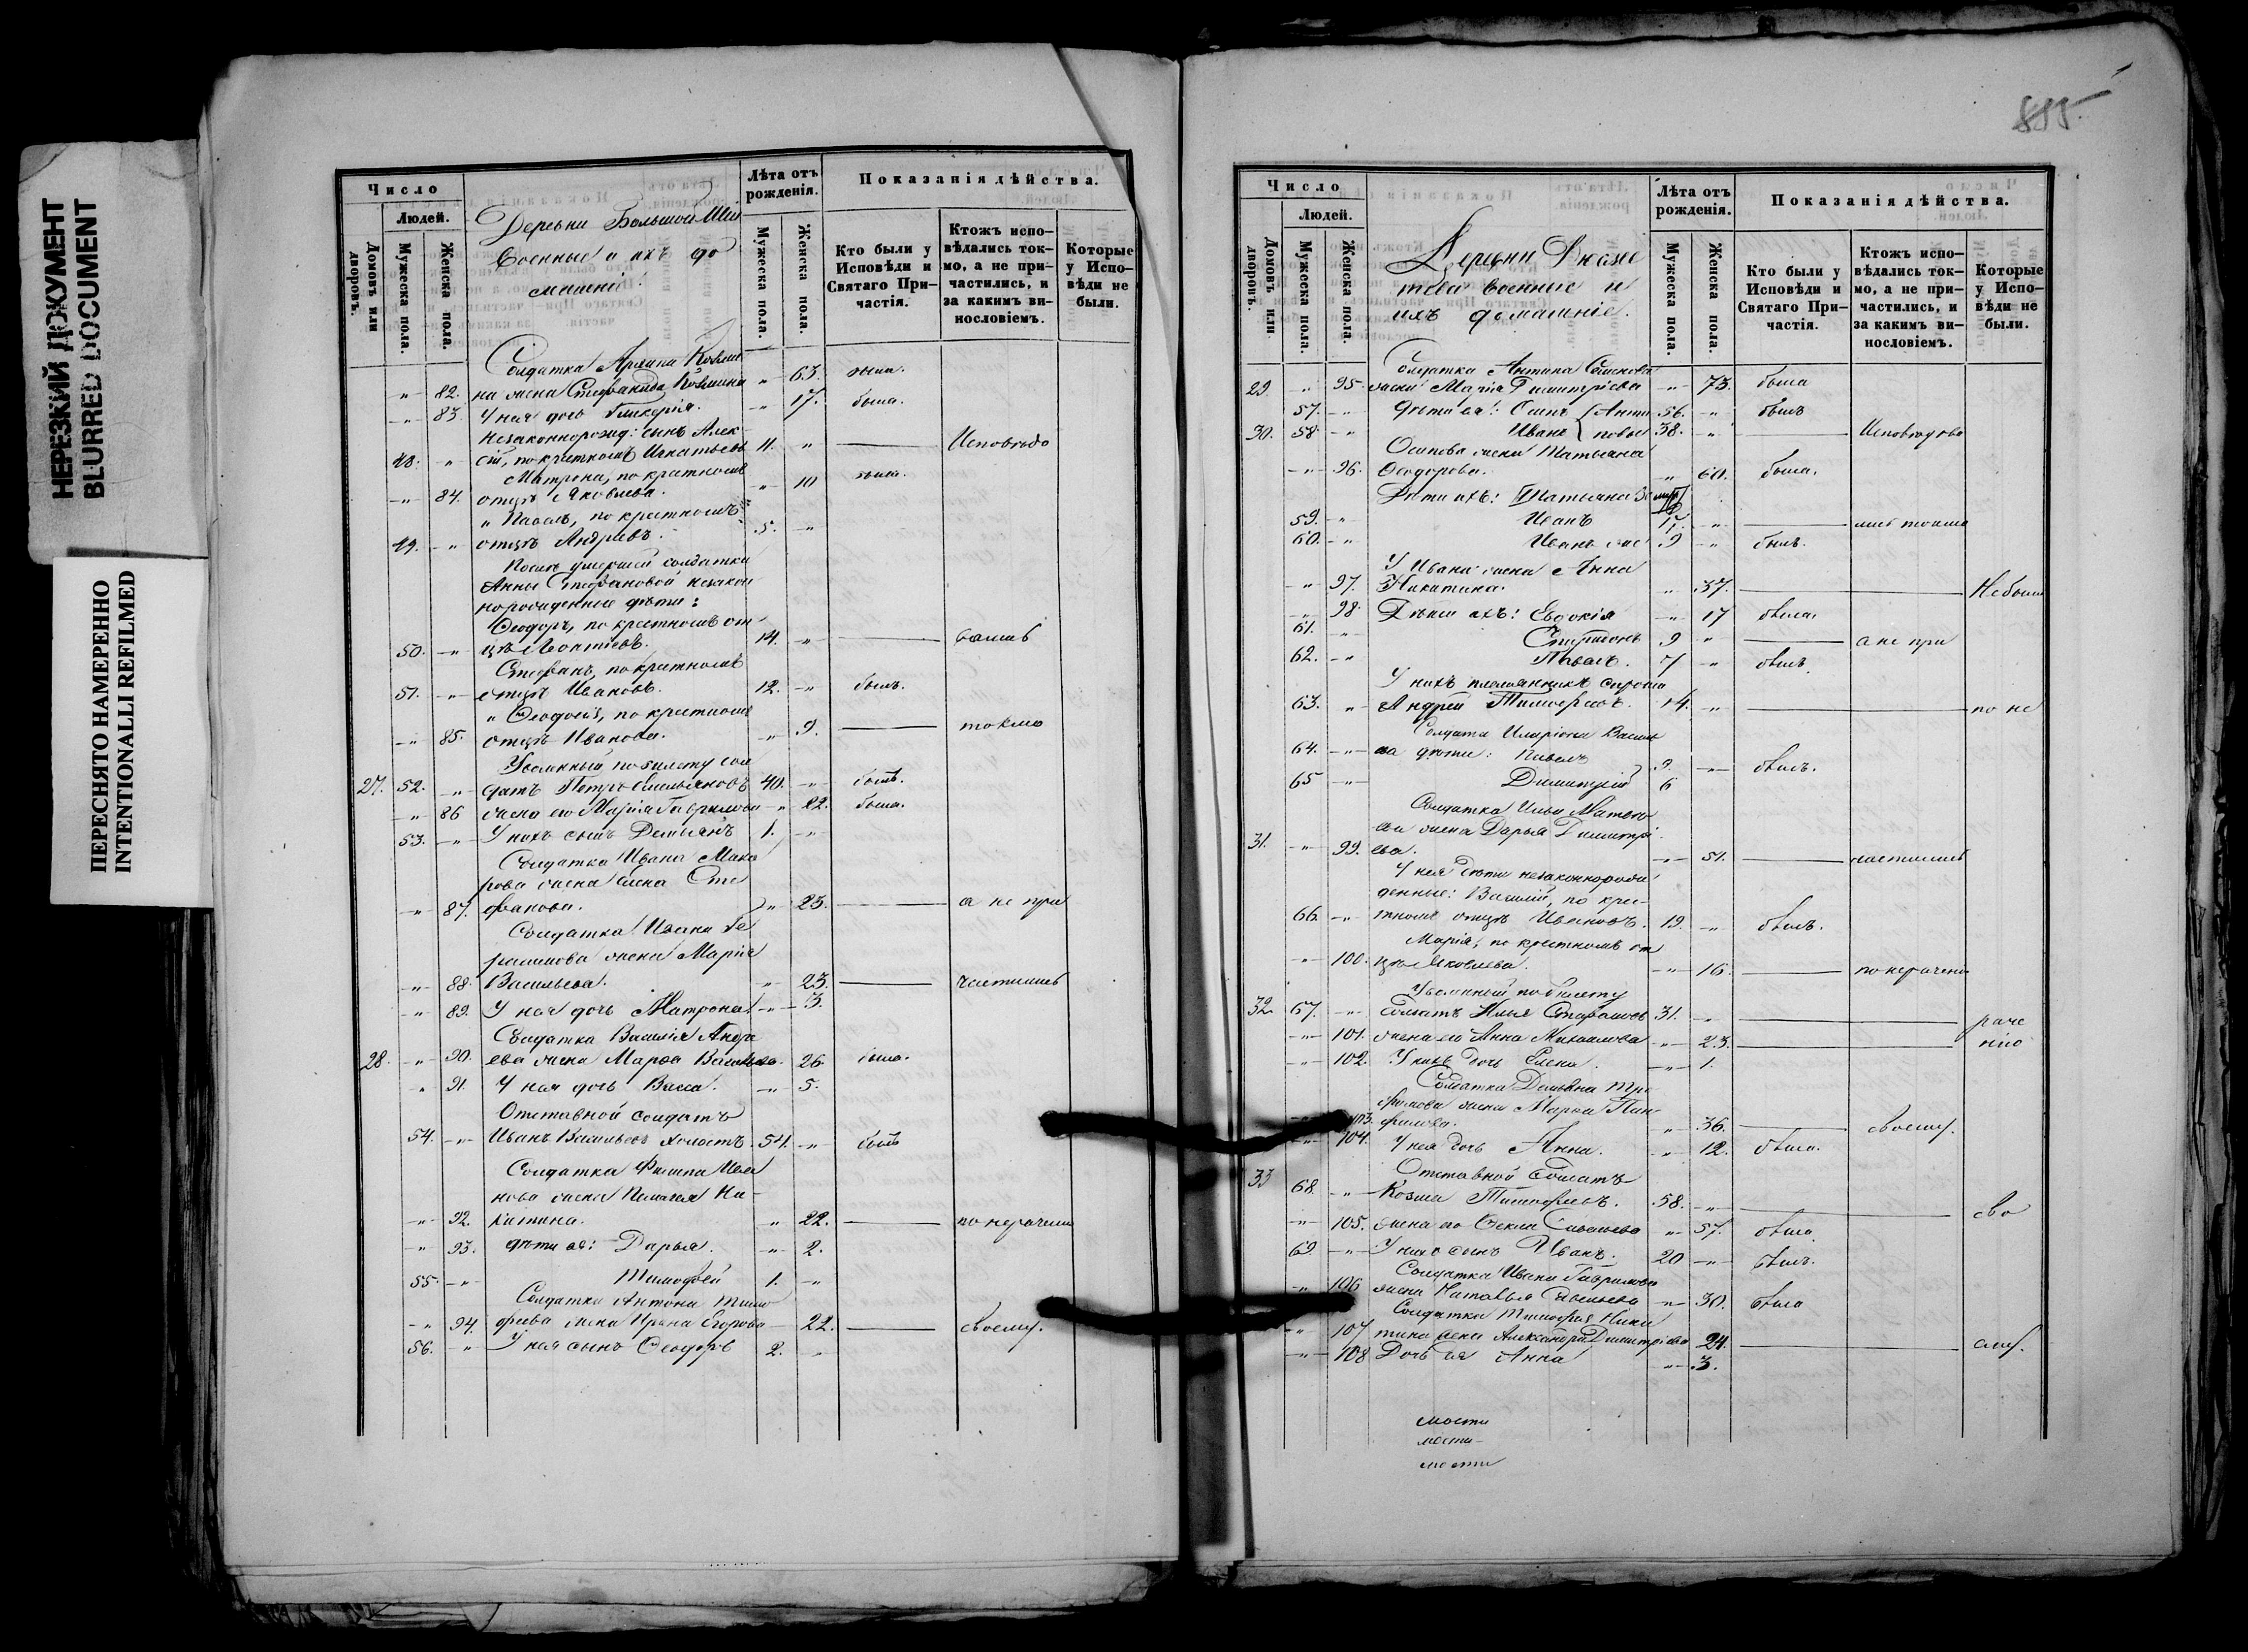 НЕРЕЗКИЙ ДОКУМЕНТ
BLURRED DOCUMENT
ПЕРЕСНЯТО НАМЕРЕННО
INTENTIONALLI REFILMED
Число
Людей.
Домовъ или дворовъ.
Мужеска пола.
Женска пола.
Деревни Большой
Военные и ихъ до
Лѣта отъ рожденія.
Мужеска пола.
Женска пола.
Показанія дѣйства.
Кто были у Исповѣди и Святаго При-частія.
Ктожъ испо-вѣдались ток-мо, а не при-частились, и за какимъ ви-нословіемъ.
Которые у Испо-вѣди не были.
Солдатка
82. на жена Стефанида Козмина " 63 была.
" 83. У нея дочь Гликерія. " 17. была.
Незаконнорожд: сынъ Алек-
48. " сій, по крестномъ Игнатьевъ 11. " Исповѣдо
Матрона, по крестномъ
" 84. отцѣ Яковлева. " 10 была.
" Павелъ, по крестномъ
49. " отцѣ Андреевъ. 5. "
Послѣ умершей солдатки
Анны Стефановой незакон
норожденные дѣти:
Ѳеодоръ, по крестномъ от-
50. " цѣ Леонтіевъ. 14. " вались
Стефанъ, по крестномъ
51. " отцѣ Ивановъ. 12. " былъ.
" Ѳеодосія, по крестномъ
" 85. отцѣ Иванова. " 9. токмо
Уволенный по билету сол
27. 52. " датъ Петръ Емельяновъ 40. " былъ.
" 86 жена его Марія Гаврилова " 22. была.
53. " У нихъ сынъ Демьянъ 1. "
Солдатка Ивана Мака
рова жена Елена Сте
" 87. фанова. " 23. а не при
Солдатка Ивана Ге
расимова жена Марія
" 88. Васильева. " 23. частились
" 89. У нея дочь Матрона. " 3.
Солдатка Василія Андре
28. " 90. ева жена Марѳа Васильева. 26. была.
" 91. У нея дочь Васса. " 5.
Отставной солдатъ
54. " Иванъ Васильевъ холостъ. 54. " былъ
Солдатка Филипа Ива
нова жена Пелагея Ни-
" 92. китина. " 22. по нерачению
" 93. дѣти ея: Дарья. " 2.
55. " Тимофей 1. "
Солдатка Антона Тимо
" 94. феева жена Ирина Егорова 22. своему.
56. " У нея сынъ Ѳеодоръ 2. "
Число
Людей.
Домовъ или дворовъ.
Мужеска пола.
Женска пола.
Деревни
военные и
ихъ домашніе.
Лѣта отъ рожденія.
Мужеска пола.
Женска пола.
Показанія дѣйства.
Кто были у Исповѣди и Святаго При-частія.
Ктожъ испо-вѣдались ток-мо, а не при-частились, и за какимъ ви-нословіемъ.
Которые у Испо-вѣди не были.
Солдатка Антипа
29. " 95. жена Марія Димитріева " 73. была
57. " Дѣти ея: Осипъ (Анти 56. " былъ
30. 58. " Иванъ повы 38. " Исповѣдова
Осипова жена Татьяна
" 96. Ѳеодорова. " 60. была.
Дѣти ихъ:
59. " Иванъ 17. " лись токмо
60. " Иванъ 9 " былъ.
У Ивана жена Анна
" 97. Никитина. " 37. Не были
" 98. Дѣти ихъ: Евдокія " 17 была.
61. " 9 " а не при
62. " Павелъ. 7 " былъ.
У нихъ племянникъ сирота
63. " Андрей Тимофеевъ. 14. " по не
Солдата Иларіона Василь
64. " ева дѣти: Павелъ 9. " былъ.
65 " Димитрій 6
Солдатка Ильи Матве
ева жена Дарья Димитрі
31. " 99. ева. " 51. частились
У нея дѣти незаконнорож
денные: Василій, по крес-
66. " тномъ отцѣ Ивановъ. 19. " былъ.
Марія, по крестномъ от
" 100. цѣ Яковлева. " 16. по нерачению
Уволенный по билету
32. 67. " Солдатъ Илья 31. " раче
" 101. жена его Анна Михайлова " 23. нію
" 102. У нихъ дочь Елена. " 1.
Солдатка Демьяна Тро
фимова жена Марѳа Пан-
103. филова. " 36. своему.
" 104. У нея дочь Анна. " 12. была.
33 Отставной Солдатъ
68. " Козма Тимофеевъ. 58. " сво
" 105. жена его Савельева " 57. была
69. " У нихъ сынъ Иванъ. 20 " былъ.
Солдатка Ивана Гаврилова
" 106 жена Наталья " 30. была
Солдатка Тимофея Ники
" 107 тина жена Александра Димитріева 24. ему.
" 108 Дочь ея Анна " 3.
мости
мости
мости